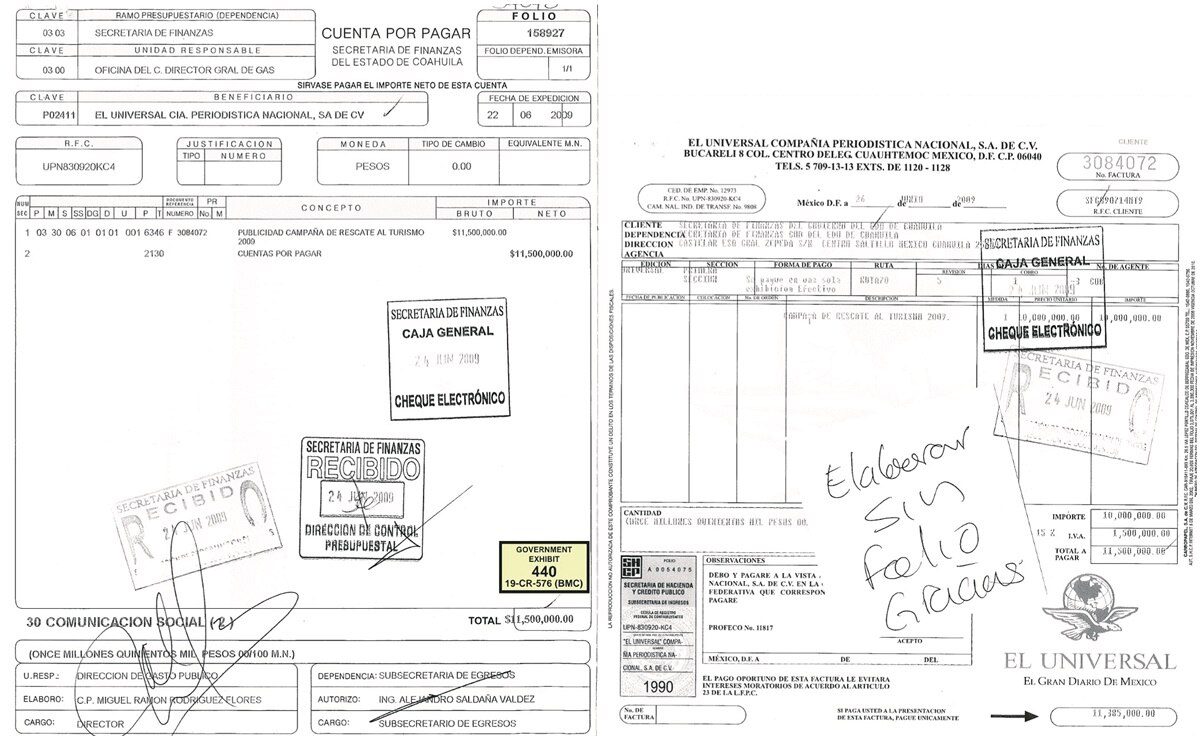 CLAVE RAMO PRESUPUESTARIO (DEPENDENCIA)
03 03 SECRETARIA DE FINANZAS
CLAVE UNIDAD RESPONSABLE
03 00 OFICINA DEL C. DIRECTOR GRAL DE GAS
CUENTA POR PAGAR
SECRETARIA DE FINANZAS
DEL ESTADO DE COAHUILA
FOLIO
158927
FOLIO DEPEND. EMISORA
1/1
SIRVASE PAGAR EL IMPORTE NETO DE ESTA CUENTA
CLAVE BENEFICIARIO
P02411 EL UNIVERSAL CIA. PERIODISTICA NACIONAL, SA DE CV
FECHA DE EXPEDICION
22 06 2009
R.F.C.
UPN830920KC4
JUSTIFICACION
TIPO NUMERO
MONEDA TIPO DE CAMBIO EQUIVALENTE M.N.
PESOS 0.00
NUM SEC P M S SS DG D U P T DOCUMENTO REFERENCIA NUMERO PR No. M CONCEPTO IMPORTE
BRUTO NETO
1 03 30 06 01 01 01 001 6346 F 3084072 PUBLICIDAD CAMPAÑA DE RESCATE AL TURISMO $11,500,000.00
2009
2 2130 CUENTAS POR PAGAR $11,500,000.00
SECRETARIA DE FINANZAS
CAJA GENERAL
24 JUN 2009
CHEQUE ELECTRÓNICO
SECRETARIA DE FINANZAS
RECIBIDO
24 JUN 2009
DIRECCION DE CONTROL
PRESUPUESTAL
SECRETARIA DE FINANZAS
RECIBIDO
24 JUN 2009
GOVERNMENT
EXHIBIT
440
19-CR-576 (BMC)
30 COMUNICACION SOCIAL
TOTAL $11,500,000.00
(ONCE MILLONES QUINIENTOS MIL PESOS 00/100 M.N.)
U.RESP.: DIRECCION DE GASTO PUBLICO
ELABORO: C.P. MIGUEL RAMON RODRIGUEZ FLORES
CARGO: DIRECTOR
DEPENDENCIA: SUBSECRETARIA DE EGRESOS
AUTORIZO: ING. ALEJANDRO SALDAÑA VALDEZ
CARGO: SUBSECRETARIO DE EGRESOS
LA REPRODUCCION NO AUTORIZADA DE ESTE COMPROBANTE CONSTITUYE UN DELITO EN LOS TERMINOS DE LAS DISPOSICIONES FISCALES.
EL UNIVERSAL COMPAÑIA PERIODISTICA NACIONAL, S.A. DE C.V.
BUCARELI 8 COL. CENTRO DELEG. CUAUHTEMOC MEXICO, D.F. C.P. 06040
TELS. 5 709-13-13 EXTS. DE 1120 - 1128
CLIENTE
3084072
No. FACTURA
R.F.C. CLIENTE
CED. DE EMP. No. 12973
R.F.C. No. UPN-830920-KC4
CAM. NAL. IND. DE TRANSF. No. 9808
México D.F. a 26 de JUNIO de 2009
CLIENTE SECRETARIA DE FINANZAS DEL GOBIERNO DEL EDO DE COAHUILA
DEPENDENCIA SECRETARIA DE FINANZAS GOB DEL EDO DE COAHUILA
DIRECCION CASTELAR ESQ GRAL ZEPEDA S/N CENTRO SALTILLO MEXICO COAHUILA
AGENCIA
EDICION SECCION FORMA DE PAGO RUTA REVISION DIAS COBRO No. DE AGENTE
UNIVERSAL PRIMERA SECCION Se pague en una sola exhibicion Efectivo 5 1
FECHA DE PUBLICACION COLOCACION No. DE ORDEN DESCRIPCION MEDIDA PRECIO UNITARIO IMPORTE
CAMPAÑA DE RESCATE AL TURISMO 2009. 1 10,000,000.00 10,000,000.00
SECRETARIA DE FINANZAS
CAJA GENERAL
24 JUN 2009
CHEQUE ELECTRÓNICO
SECRETARIA DE FINANZAS
RECIBIDO
24 JUN 2009
Elaborar
Sin
Folio
Gracias
CANTIDAD
(ONCE MILLONES QUINIENTOS MIL PESOS 00.
IMPORTE 10,000,000.00
15 % I.V.A. 1,500,000.00
TOTAL A PAGAR 11,500,000.00
SHCP
FOLIO
A 0054075
SECRETARIA DE HACIENDA
Y CREDITO PUBLICO
SUBSECRETARIA DE INGRESOS
CEDULA DE REGISTRO
FEDERAL DE CONTRIBUYENTES
UPN-830920-KC4
"EL UNIVERSAL" COMPA-
ÑIA PERIODISTICA NA-
CIONAL, S.A. DE C.V.
1990
OBSERVACIONES
DEBO Y PAGARE A LA VISTA
NACIONAL, S.A. DE C.V. EN LA
FEDERATIVA QUE CORRESPON
PAGARE
PROFECO No. 11817
ACEPTO
MÉXICO, D.F. A DE DEL
EL PAGO OPORTUNO DE ESTA FACTURA LE EVITARA
INTERESES MORATORIOS DE ACUERDO AL ARTICULO
23 DE LA L.F.P.C.
EL UNIVERSAL
EL GRAN DIARIO DE MEXICO
No. DE FACTURA
SI PAGA USTED A LA PRESENTACION
DE ESTA FACTURA, PAGUE UNICAMENTE
11,385,000.00